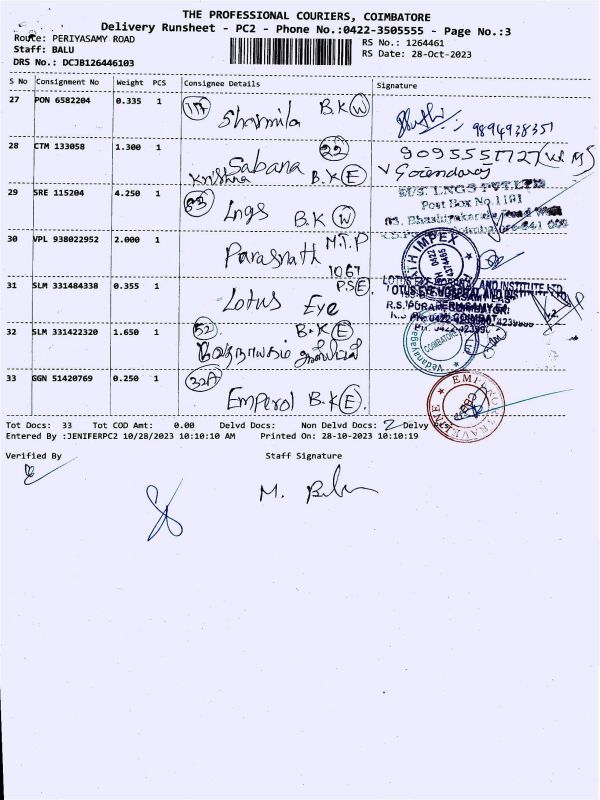 THE PROFESSIONAL COURIERS, COIMBATORE
Delivery Runsheet - PC2 - Phone No.:0422-3505555 - Page No.:3
Route: PERIYASAMY ROAD
RS No.: 1264461
Staff: BALU
RS Date: 28-Oct-2023
DRS No.: DCJB126446103
S No Consignment No Weight PCS Consignee Details Signature
27 PON 6582204 0.335 1 Sharmila B.K W
9894938357
28 CTM 133058 1.300 1 Sabana 22
Krishna B.K E
29 SRE 115204 4.250 1 Lngs B.K W
Post Box No.1101
30 VPL 938022952 2.000 1 Parasnath M.T.P
1067
31 SLM 331484338 0.355 1 Lotus Eye P.S E
LOTUS EYE HOSPITAL AND INSTITUTE LTD
32 SLM 331422320 1.650 1 52 B.K E
COIMBATORE
33 GGN 51420769 0.250 1 32A Emperol B.K E
Tot Docs: 33 Tot COD Amt: 0.00 Delvd Docs: Non Delvd Docs: 2 Delvy
Entered By :JENIFERPC2 10/28/2023 10:10:10 AM Printed On: 28-10-2023 10:10:19
Verified By Staff Signature